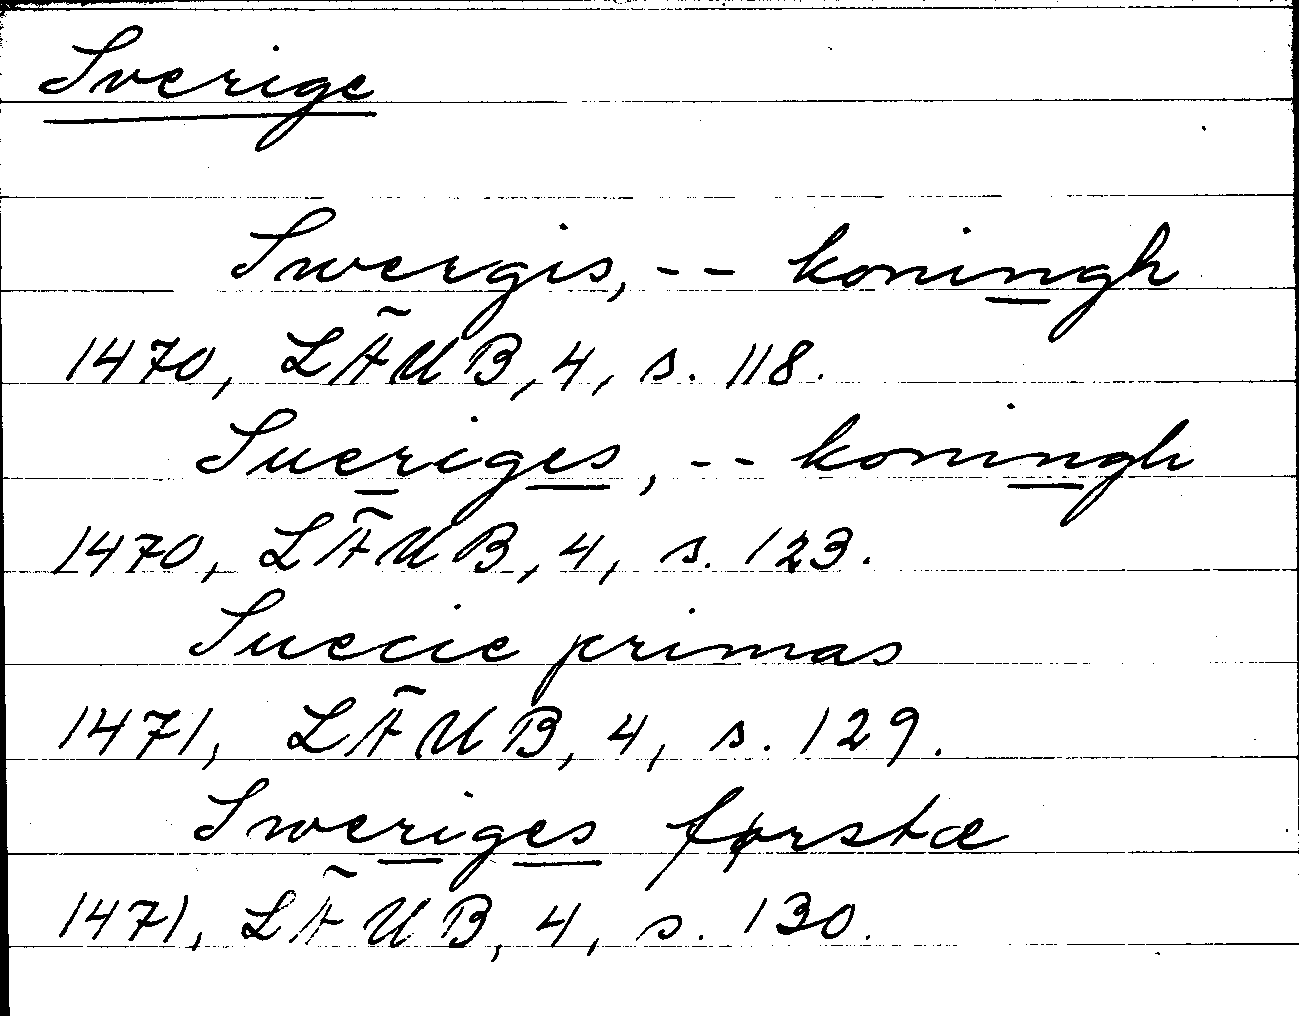 Sverige
Swergis, -- koningh
1470, LÄUB, 4, s. 118.
Sueriges, -- koningh
1470, LÄUB, 4, s. 123.
Suecie primas
1471, LÄUB, 4, s. 129.
Sweriges førstæ
1471, LÄUB, 4, s. 130.